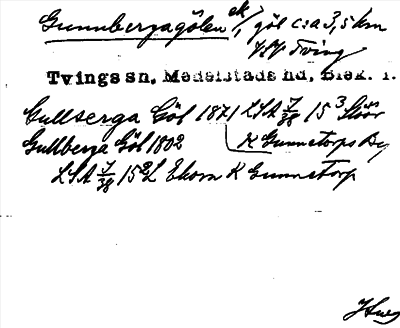 Gunnbergagölen ek/, göl c:a 3,5 km
Tving
Tvings sn, Medelstads hd, Blek. l.
Gullserga Göl 1871 LSA 7/38 15 3 Stöör
Gullberga Göl 1802 K Gunnetorps By
LSA 7/38 15 2 L Ekorn K Gunnetorp